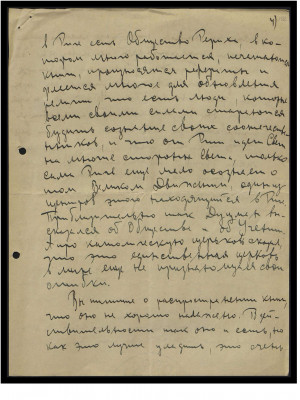 4)
в Риге есть Общество Рериха, в ко-
тором много работается, печатаются
книги, произносятся рефераты и
делается многое для обновления
религии что есть люди, которые
всеми своими силами стараются
будить сознание своих соотечест-
венников, и что от Риги идет Свет
на многие стороны света, только
сама Рига еще мало осознает о
том Великом Движении, один из
центров этого находящийся в Риге.
Приблизительно так Думает вы-
сказался об Обществе и об Учении.
А про католическую церковь сказал,
что это единственная церковь
в мире еще не признавшая свои
ошибки.
Вы пишите о распространении книг,
что оно не хорошо налажено. Дей-
ствительности так оно и есть, но
как это лучше уладить, это очень